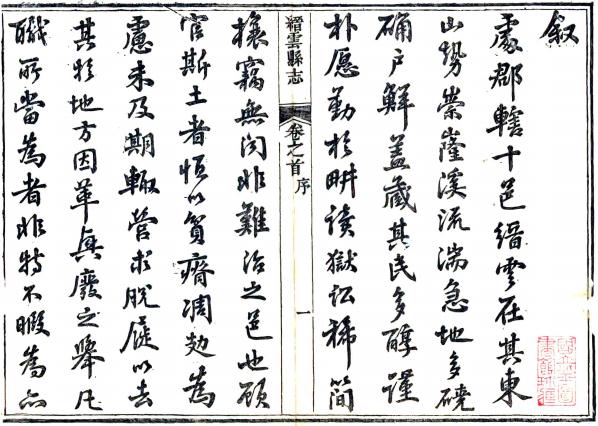 叙
處郡轄十邑縉雲在其東
山勢崇隆溪流湍急地多磽
确户鮮蓋藏其民多醇謹
朴愿勤於畊讀獄訟稀簡
縉雲縣志 卷之首 序 一
攘竊無闻非難治之邑也顾
官斯土者恒以貧瘠凋為
慮未及期輙營求脫屣以去
其於地方因革興廢之舉凡
職所當為者非特不暇為亦